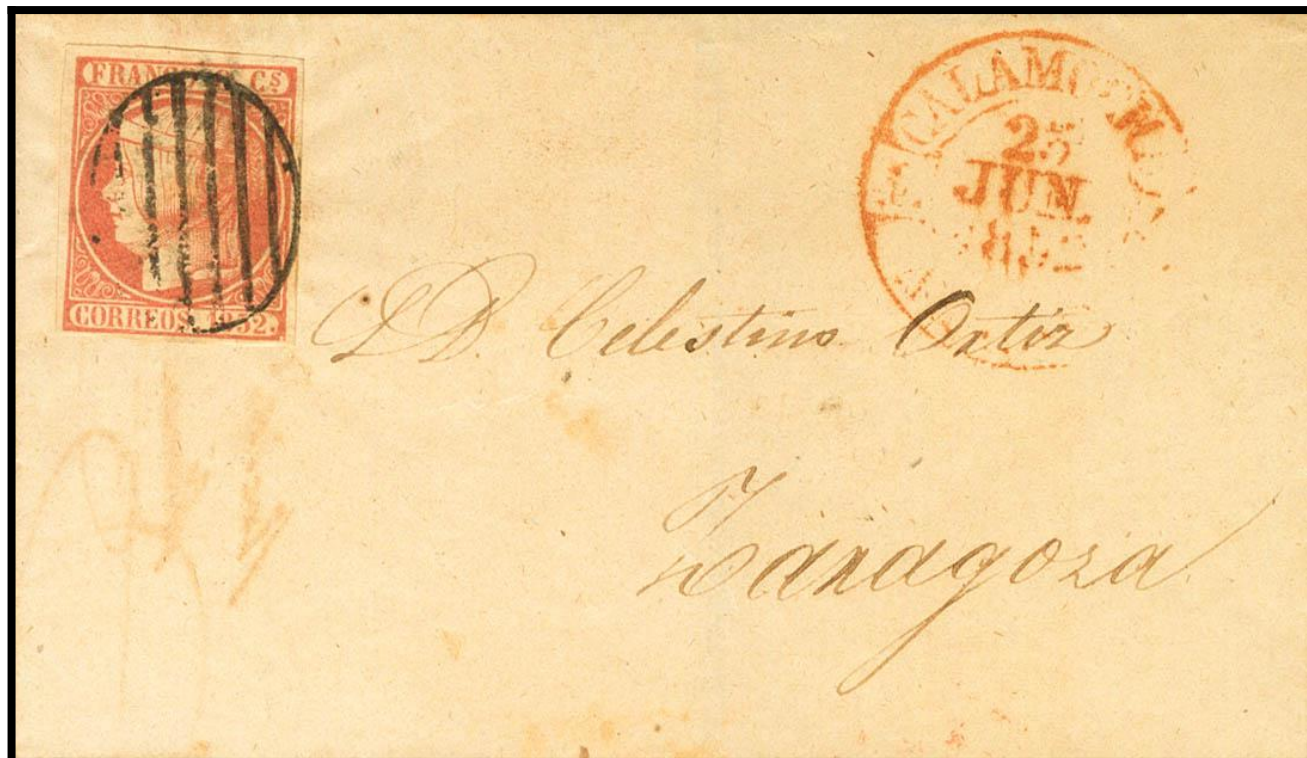 FRANCO Cs
CORREOS 1852.
CALAMOCHA
25
JUN.
1852
Sr. D. Celestino Ortiz
Zaragoza